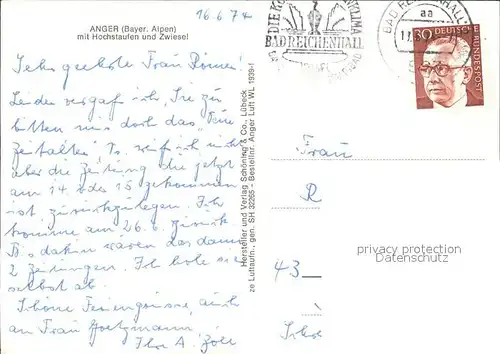 16.6.74
ANGER (Bayer. Alpen)
mit Hochstaufen und Zwiesel
Sehr geehrte Frau Römer!
Leider vergaß ich, Sie zu
bitten mir doch das "Neue
Zeitalter"
aber die Zeitung die jetzt
am 14 oder 15 gekommen
ist, zurückzulegen. Ich
komme am 26.6. zurück
Bis dahin wären das dann
2 Zeitungen. Ich hole sie
selbst ab.
Schöne Feriengrüsse, auch
an Frau
Ihre A.
Hersteller und Verlag Schöning & Co., Lübeck
ze Luftaufn., gen. SH 32265 - Bestellnr. Anger Luft WL 1938-I
BAD REICHENHALL
BAD REICHENHALL
aa
30
DEUTSCHE BUNDESPOST
Frau
R
privacy protection
Datenschutz
43